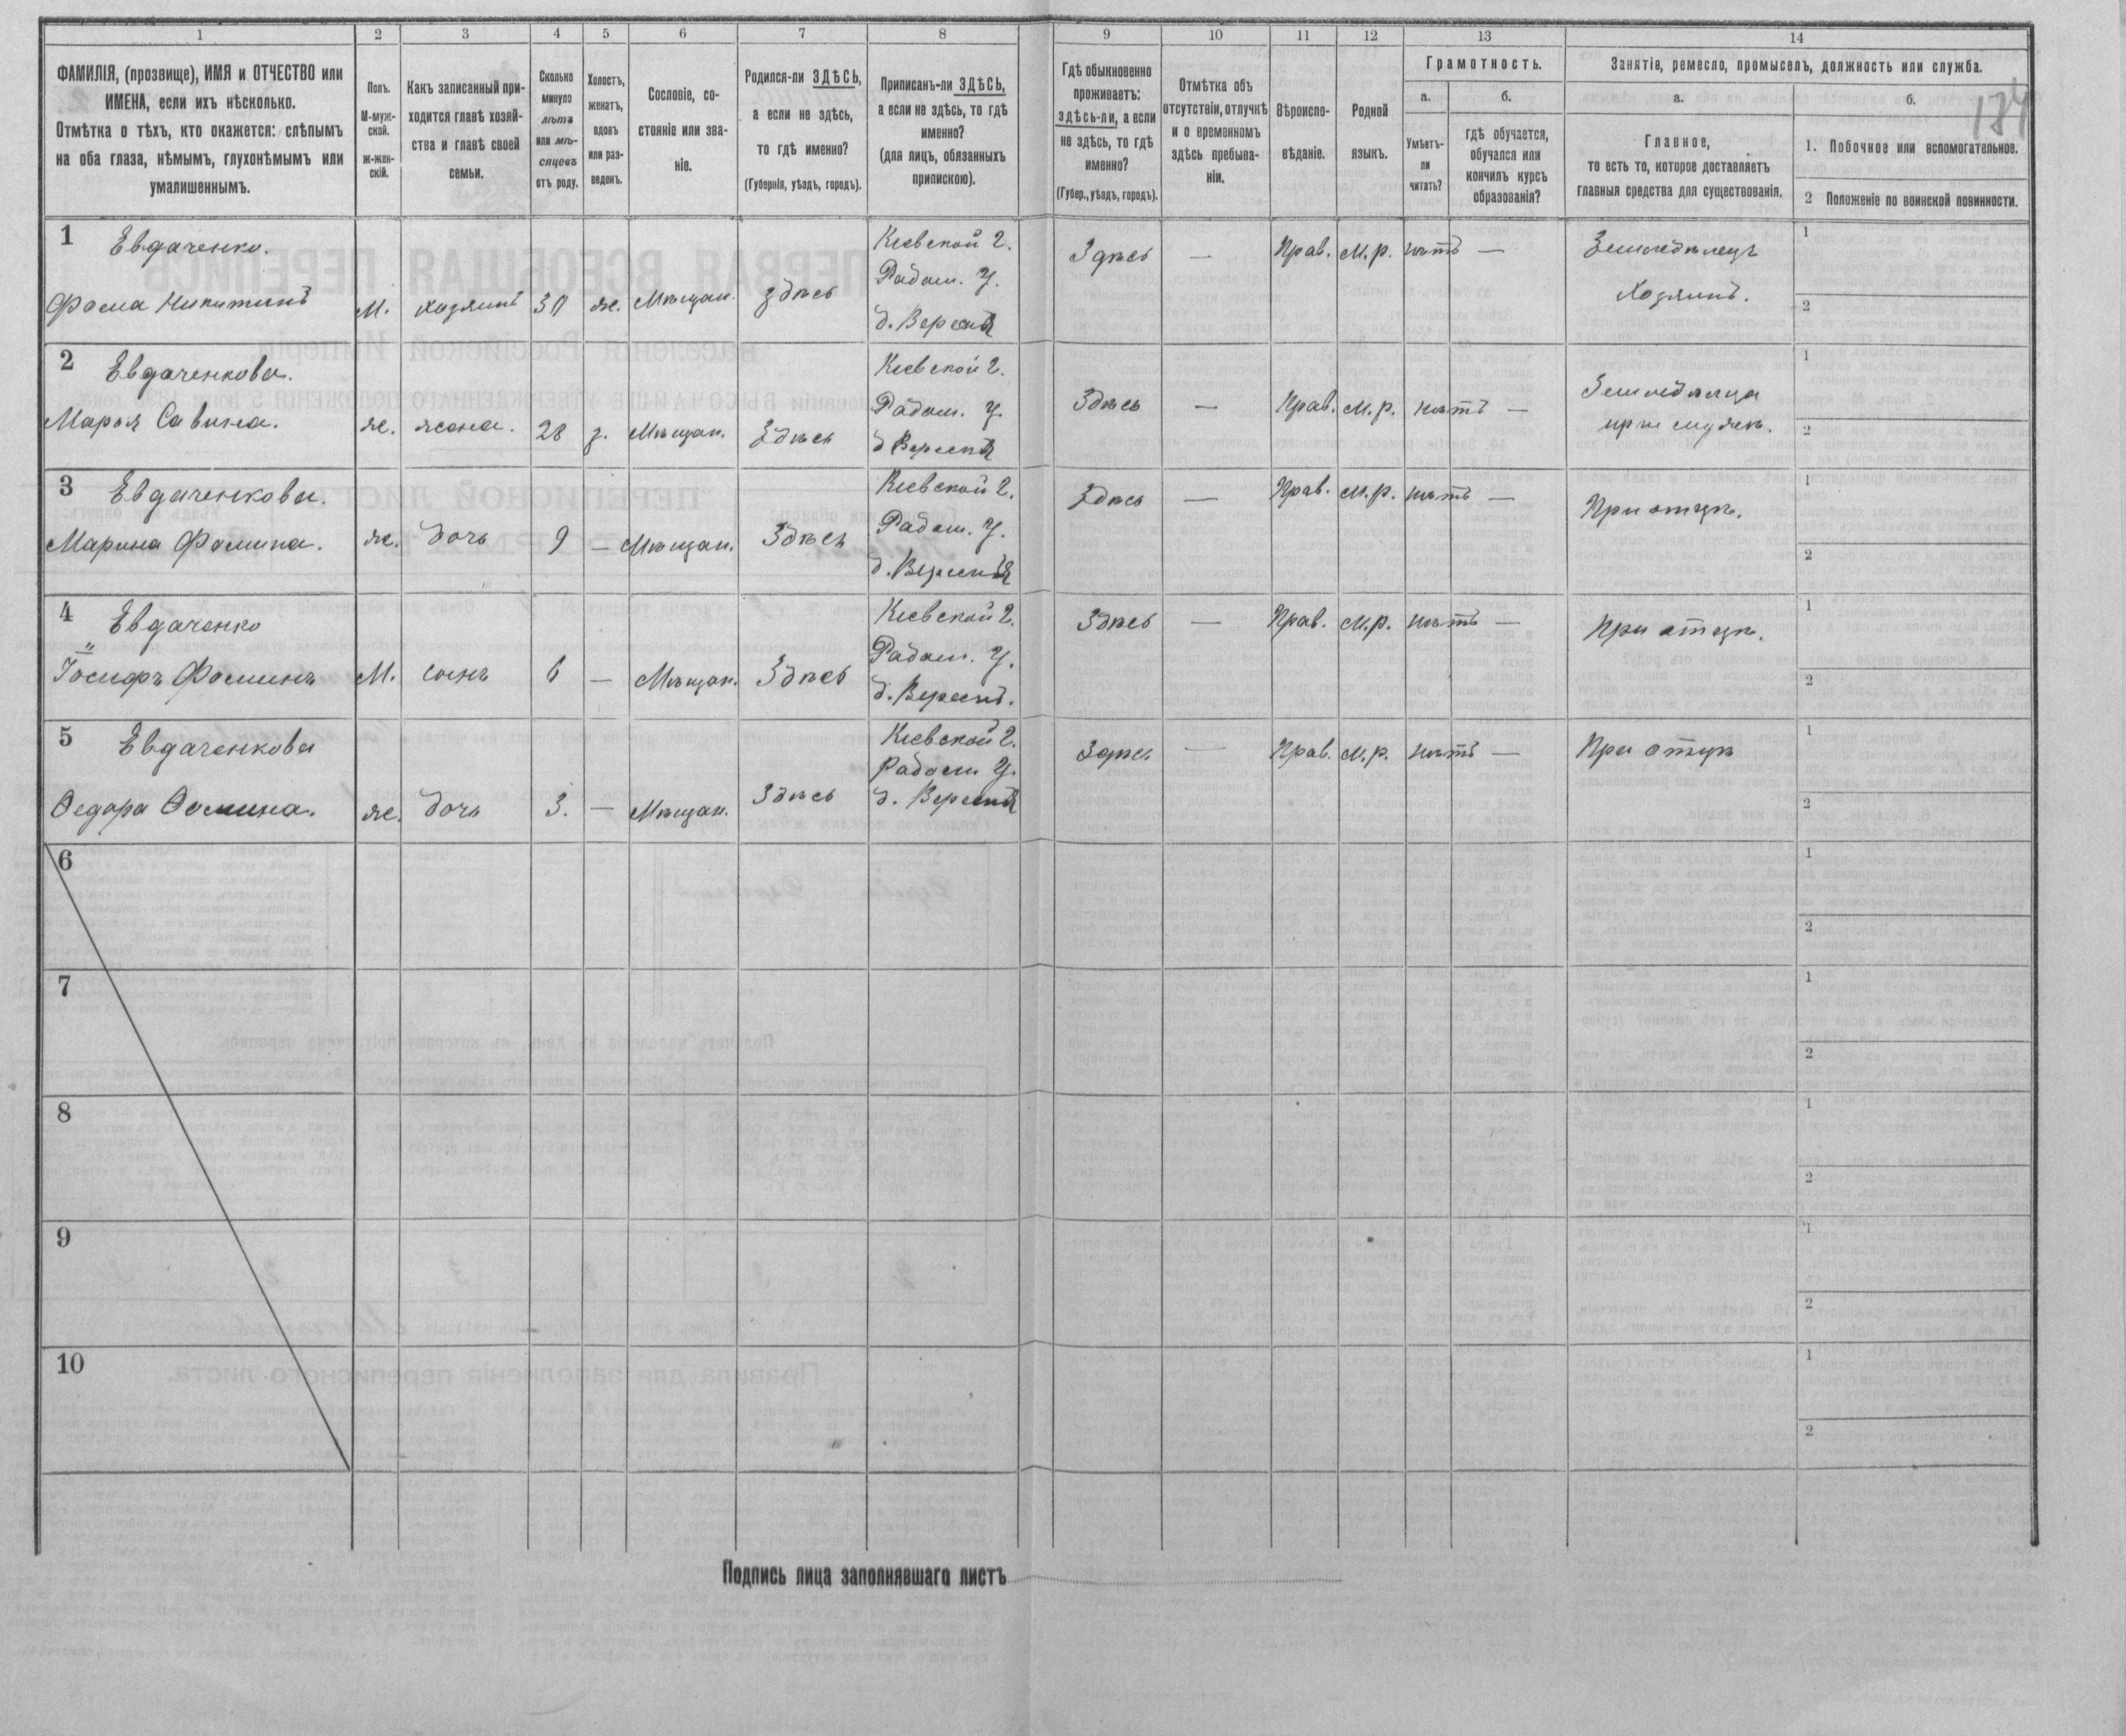 1 2 3 4 5 6 7 8 9 10 11 12 13 14
ФАМИЛІЯ, (прозвище), ИМЯ и ОТЧЕСТВО или
ИМЕНА, если ихъ нѣсколько.
Отмѣтка о тѣхъ, кто окажется: слѣпымъ
на оба глаза, нѣмымъ, глухонѣмымъ или
умалишеннымъ.
Полъ.
М-муж-
ской.
ж-жен-
скій.
Какъ записанный при-
ходится главѣ хозяй-
ства и главѣ своей
семьи.
Сколько
минуло
лѣтъ
или мѣ-
сяцевъ
отъ роду.
Холостъ,
женатъ,
вдовъ
или раз-
веденъ.
Сословіе, со-
стояніе или зва-
ніе.
Родился-ли ЗДѢСЬ,
а если не здѣсь,
то гдѣ именно?
(Губернія, уѣздъ, городъ).
Приписанъ-ли ЗДѢСЬ,
а если не здѣсь, то гдѣ
именно?
(для лицъ, обязанныхъ
припискою).
Гдѣ обыкновенно
проживаетъ:
здѣсь-ли, а если
не здѣсь, то гдѣ
именно?
(Губер., уѣздъ, городъ).
Отмѣтка объ
отсутствіи, отлучкѣ
и о временномъ
здѣсь пребыва-
ніи.
Вѣроиспо-
вѣданіе.
Родной
языкъ.
Грамотность.
а.
Умѣетъ-
ли
читать?
б.
гдѣ обучается,
обучался или
кончилъ курсъ
образованія?
Занятіе, ремесло, промыселъ, должность или служба.
а.
Главное,
то есть то, которое доставляетъ
главныя средства для существованія.
б.
1. Побочное или вспомогательное.
2 Положеніе по воинской повинности.
134
1 Евдаченко.
Фома Никитинъ
М. хозяинъ 30 ж. Мѣщан. здѣсь
Кіевской г.
Радом. У.
д. Вересня
Здѣсь — Прав. М.р. нѣтъ —
Земледѣлецъ
Хозяинъ.
1
2
2 Евдаченкова.
Марья Савина.
ж. жена. 28 з. Мѣщан. Здѣсь
Кіевской г.
Радом. У.
д Вересня
Здѣсь — Прав. М.р. нѣтъ —
Земледѣлица
при мужѣ.
1
2
3 Евдаченкова.
Марина Фомина.
ж. дочь 9 — Мѣщан. Здѣсь
Кіевской г.
Радом. У.
д. Вересня
Здѣсь — Прав. М.р. нѣтъ —
При отцѣ.
1
2
4 Евдаченко
Іосифъ Фоминъ
М. сынъ 6 — Мѣщан. Здѣсь
Кіевской г.
Радом. У.
д. Вересн.
Здѣсь — Прав. М.р. нѣтъ —
При отцѣ.
1
2
5 Евдаченкова
Ѳедора Ѳомина.
ж. дочь 3. — Мѣщан. Здѣсь
Кіевской г.
Радом У.
д. Вересня
Здѣсь — Прав. М.р. нѣтъ —
При отцѣ
1
2
6
1
2
7
1
2
8
1
2
9
1
2
10
1
2
Подпись лица заполнявшаго листъ